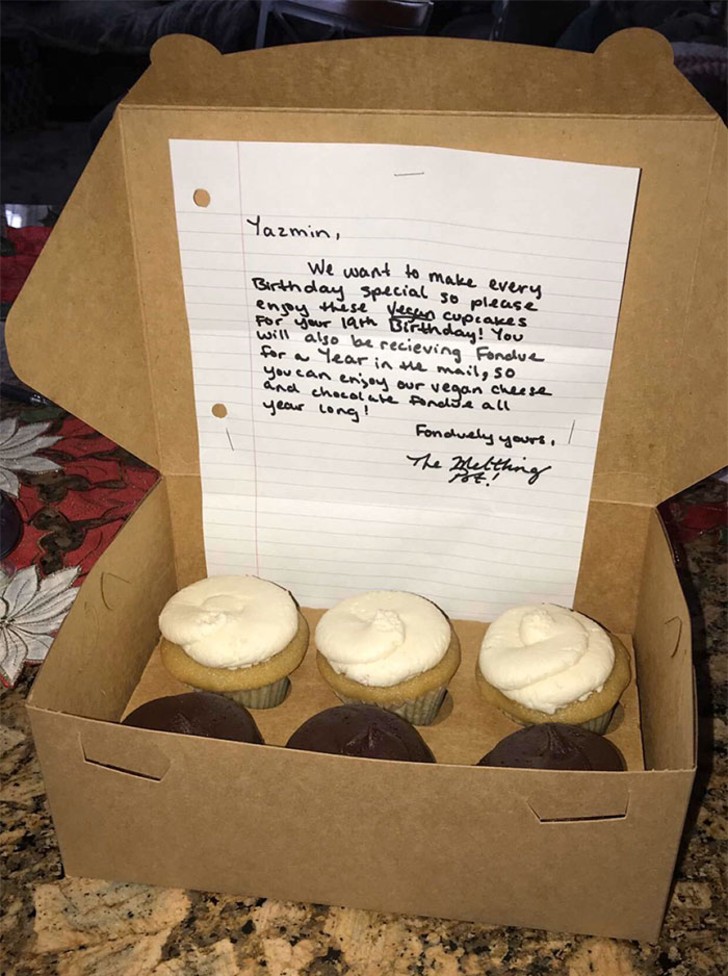 Yazmin,
We want to make every
Birthday special so please
enjoy these Vegan cupcakes
For your 19th Birthday! You
will also be recieving Fondue
for a Year in the mail, so
you can enjoy our vegan cheese
and chocolate fondue all
year long!
Fonduely yours,
The Meltting
Pot!